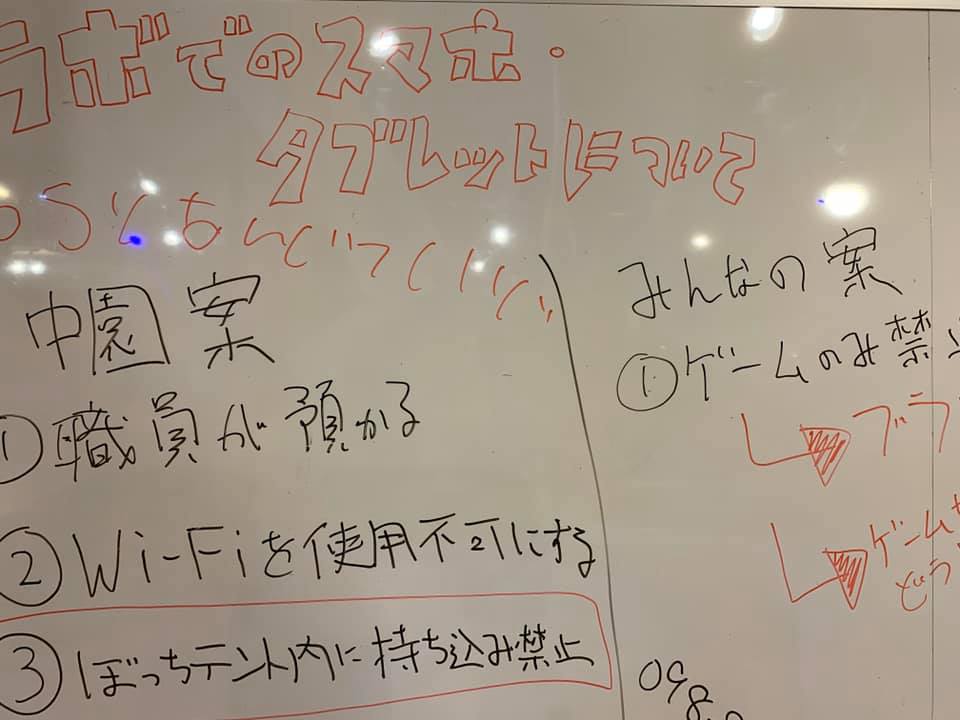 ラボでのスマホ・
タブレットについて
中園案
① 職員が預かる
② Wi-Fiを使用不可にする
③ ぼっちテント内に持ち込み禁止
みんなの案
① ゲームのみ禁止
ブラ
ゲーム
どう